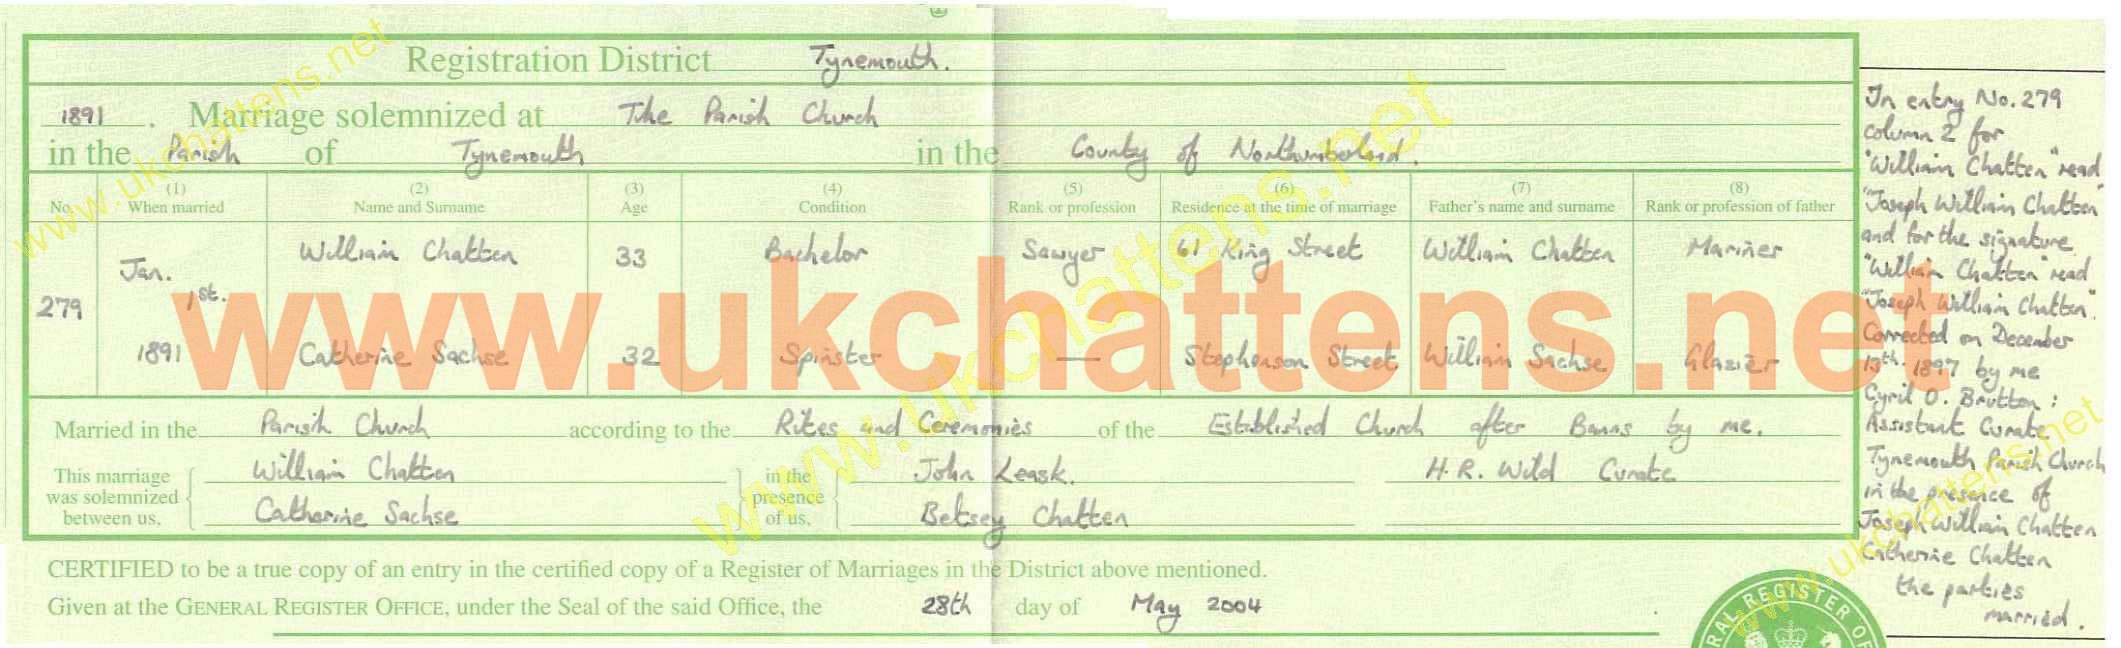 Registration District Tynemouth.
1891. Marriage solemnized at The Parish Church
in the Parish of Tynemouth in the County of Northumberland.
No. (1) When married (2) Name and Surname (3) Age (4) Condition (5) Rank or profession (6) Residence at the time of marriage (7) Father's name and surname (8) Rank or profession of father
William Chatten 33 Bachelor Sawyer 61 King Street William Chatten Mariner
279 Jan. 1st. 1891
Catherine Sachse 32 Spinster — Stephenson Street William Sachse Glazier
Married in the Parish Church according to the Rites and Ceremonies of the Established Church after Banns by me.
This marriage was solemnized between us, William Chatten in the presence of us, John Leask. H.R. Wild Curate
Catherine Sachse Betsey Chatten
CERTIFIED to be a true copy of an entry in the certified copy of a Register of Marriages in the District above mentioned.
Given at the GENERAL REGISTER OFFICE, under the Seal of the said Office, the 28th day of May 2004
In entry No. 279
column 2 for
"William Chatten" read
"Joseph William Chatten"
and for the signature
"William Chatten" read
"Joseph William Chatten".
Corrected on December
13th. 1897 by me
Cyril O. Brutton:
Assistant Curate
Tynemouth Parish Church
in the presence of
Joseph William Chatten
Catherine Chatten
the parties
married.
www.ukchattens.net
www.ukchattens.net
www.ukchattens.net
www.ukchattens.net
RAL REGISTER OF